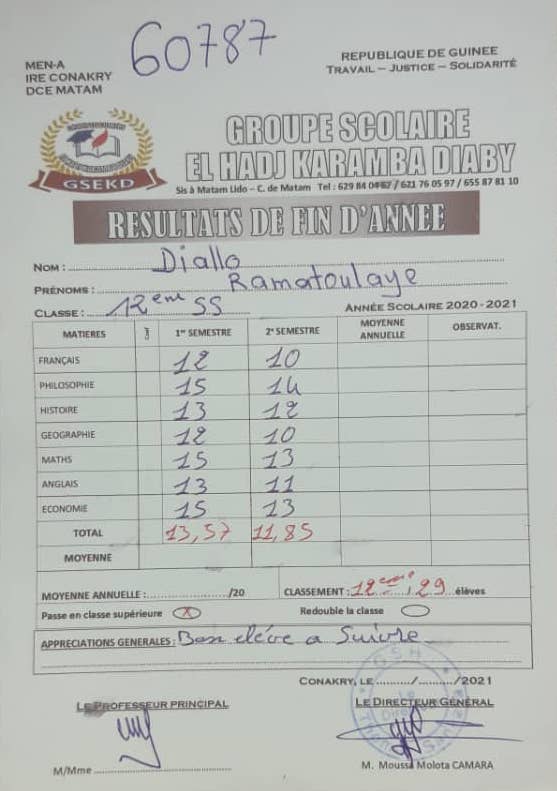 60787
MEN-A
IRE CONAKRY
DCE MATAM
REPUBLIQUE DE GUINEE
TRAVAIL – JUSTICE – SOLIDARITÉ
GSEKD
GROUPE SCOLAIRE
EL HADJ KARAMBA DIABY
Sis à Matam Lido – C. de Matam Tel : 629 84 04 67 / 621 76 05 97 / 655 87 81 10
RESULTATS DE FIN D'ANNEE
NOM : Diallo
PRÉNOMS : Ramatoulaye
CLASSE : 12ème SS ANNÉE SCOLAIRE 2020 - 2021
MATIERES 1er SEMESTRE 2e SEMESTRE MOYENNE ANNUELLE OBSERVAT.
FRANÇAIS 12 10
PHILOSOPHIE 15 14
HISTOIRE 13 12
GEOGRAPHIE 12 10
MATHS 15 13
ANGLAIS 13 11
ECONOMIE 15 13
TOTAL 13,57 11,85
MOYENNE
MOYENNE ANNUELLE : ...................... /20 CLASSEMENT : 12ème / 29 élèves
Passe en classe supérieure X Redouble la classe
APPRECIATIONS GENERALES : Bon élève a Suivre
CONAKRY, LE ........../........../2021
LE PROFESSEUR PRINCIPAL LE DIRECTEUR GÉNÉRAL
M/Mme ................................ M. Moussa Molota CAMARA